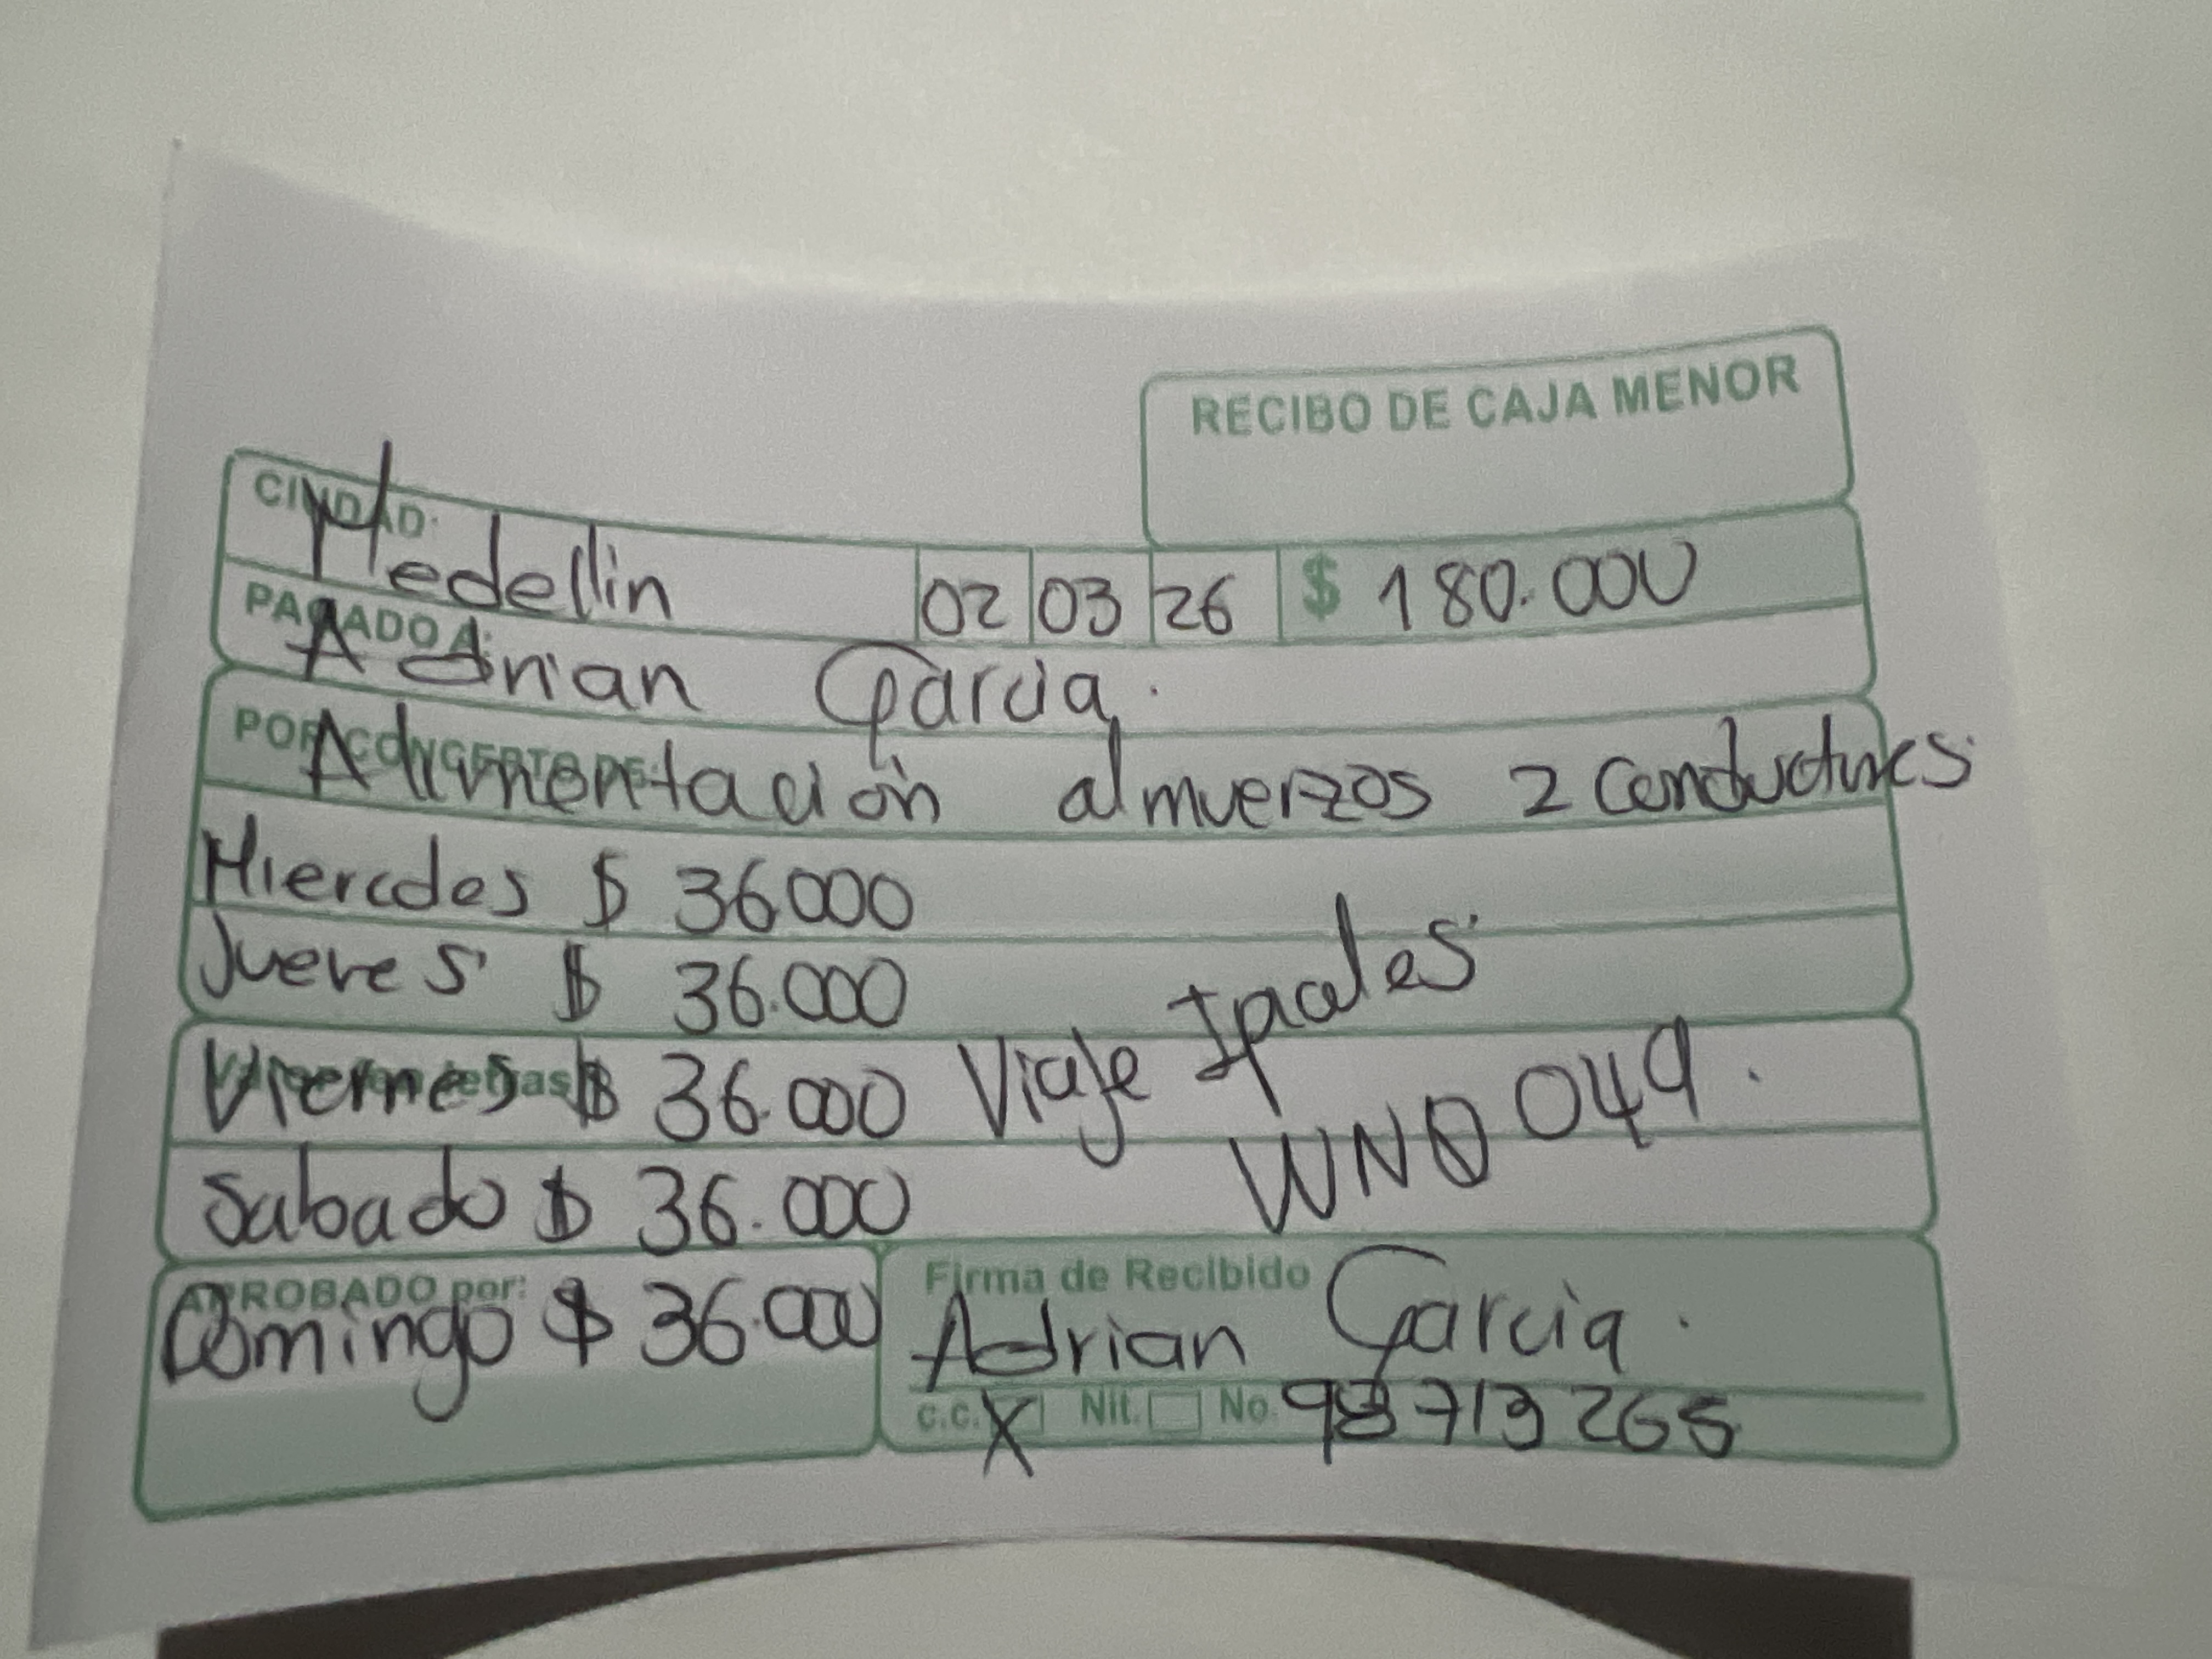 RECIBO DE CAJA MENOR
CIUDAD: Medellin 02 03 26 $ 180.000
PAGADO A: Adrian Garcia.
POR CONCEPTO DE: Alimentación almuerzos 2 conductores
Miercoles $ 36.000
Jueves $ 36.000
Viaje Ipiales
Viernes $ 36.000
WNQ 049.
Sabado $ 36.000
APROBADO por:
Domingo $ 36.000
Firma de Recibido
Adrian Garcia.
c.c. X Nit. No.